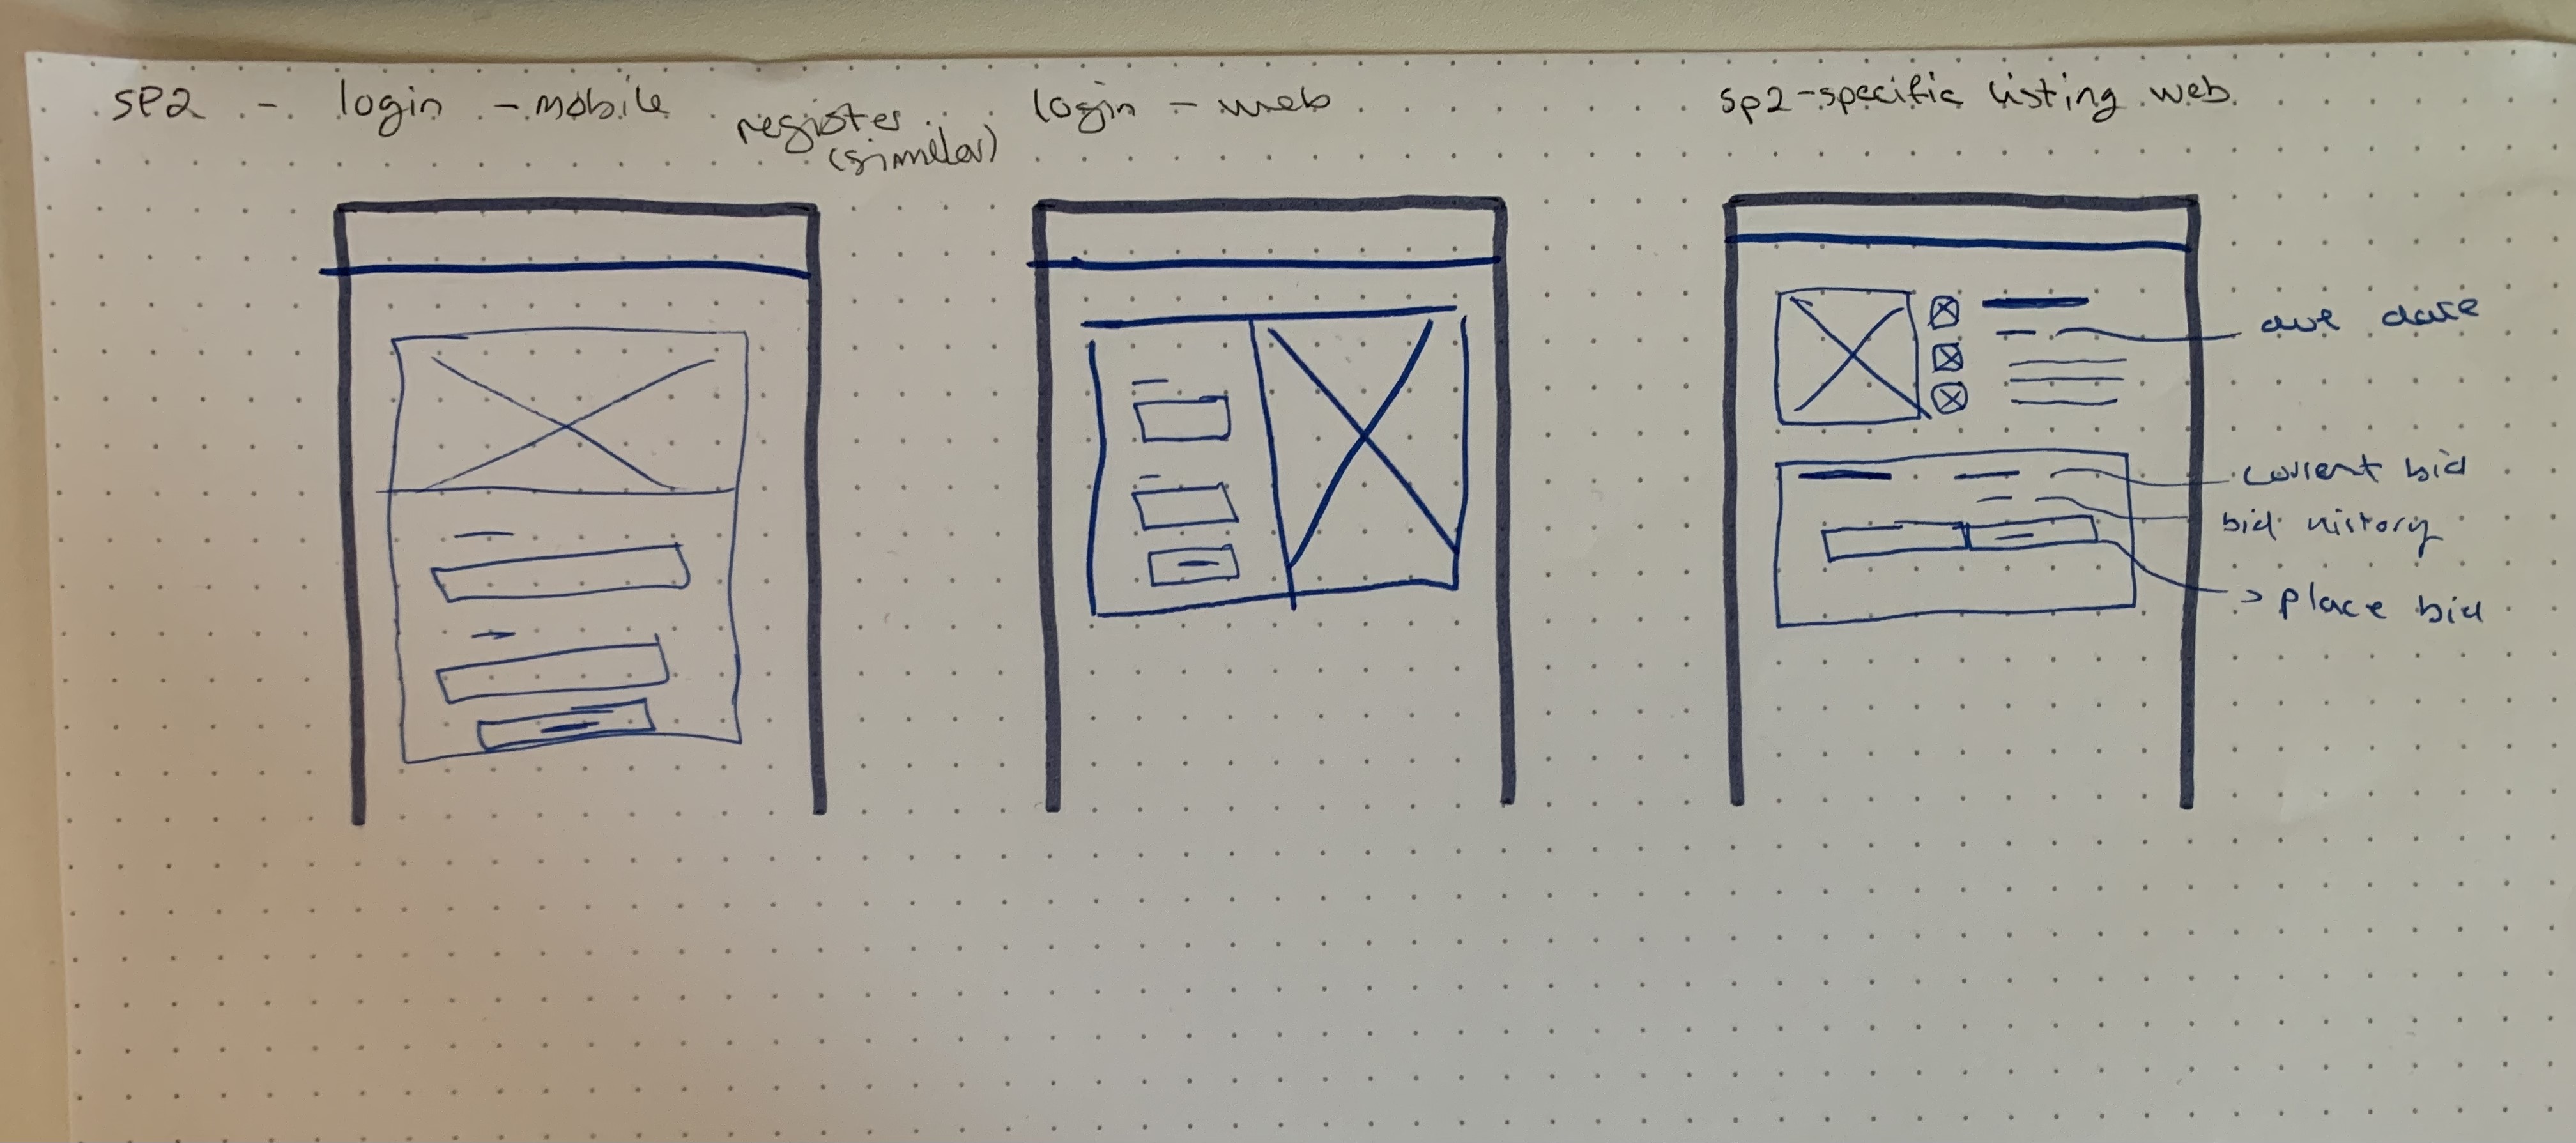 SP2 - login - mobile
register
(similar)
login - web
sp2-specific listing web
due date
current bid
bid history
place bid